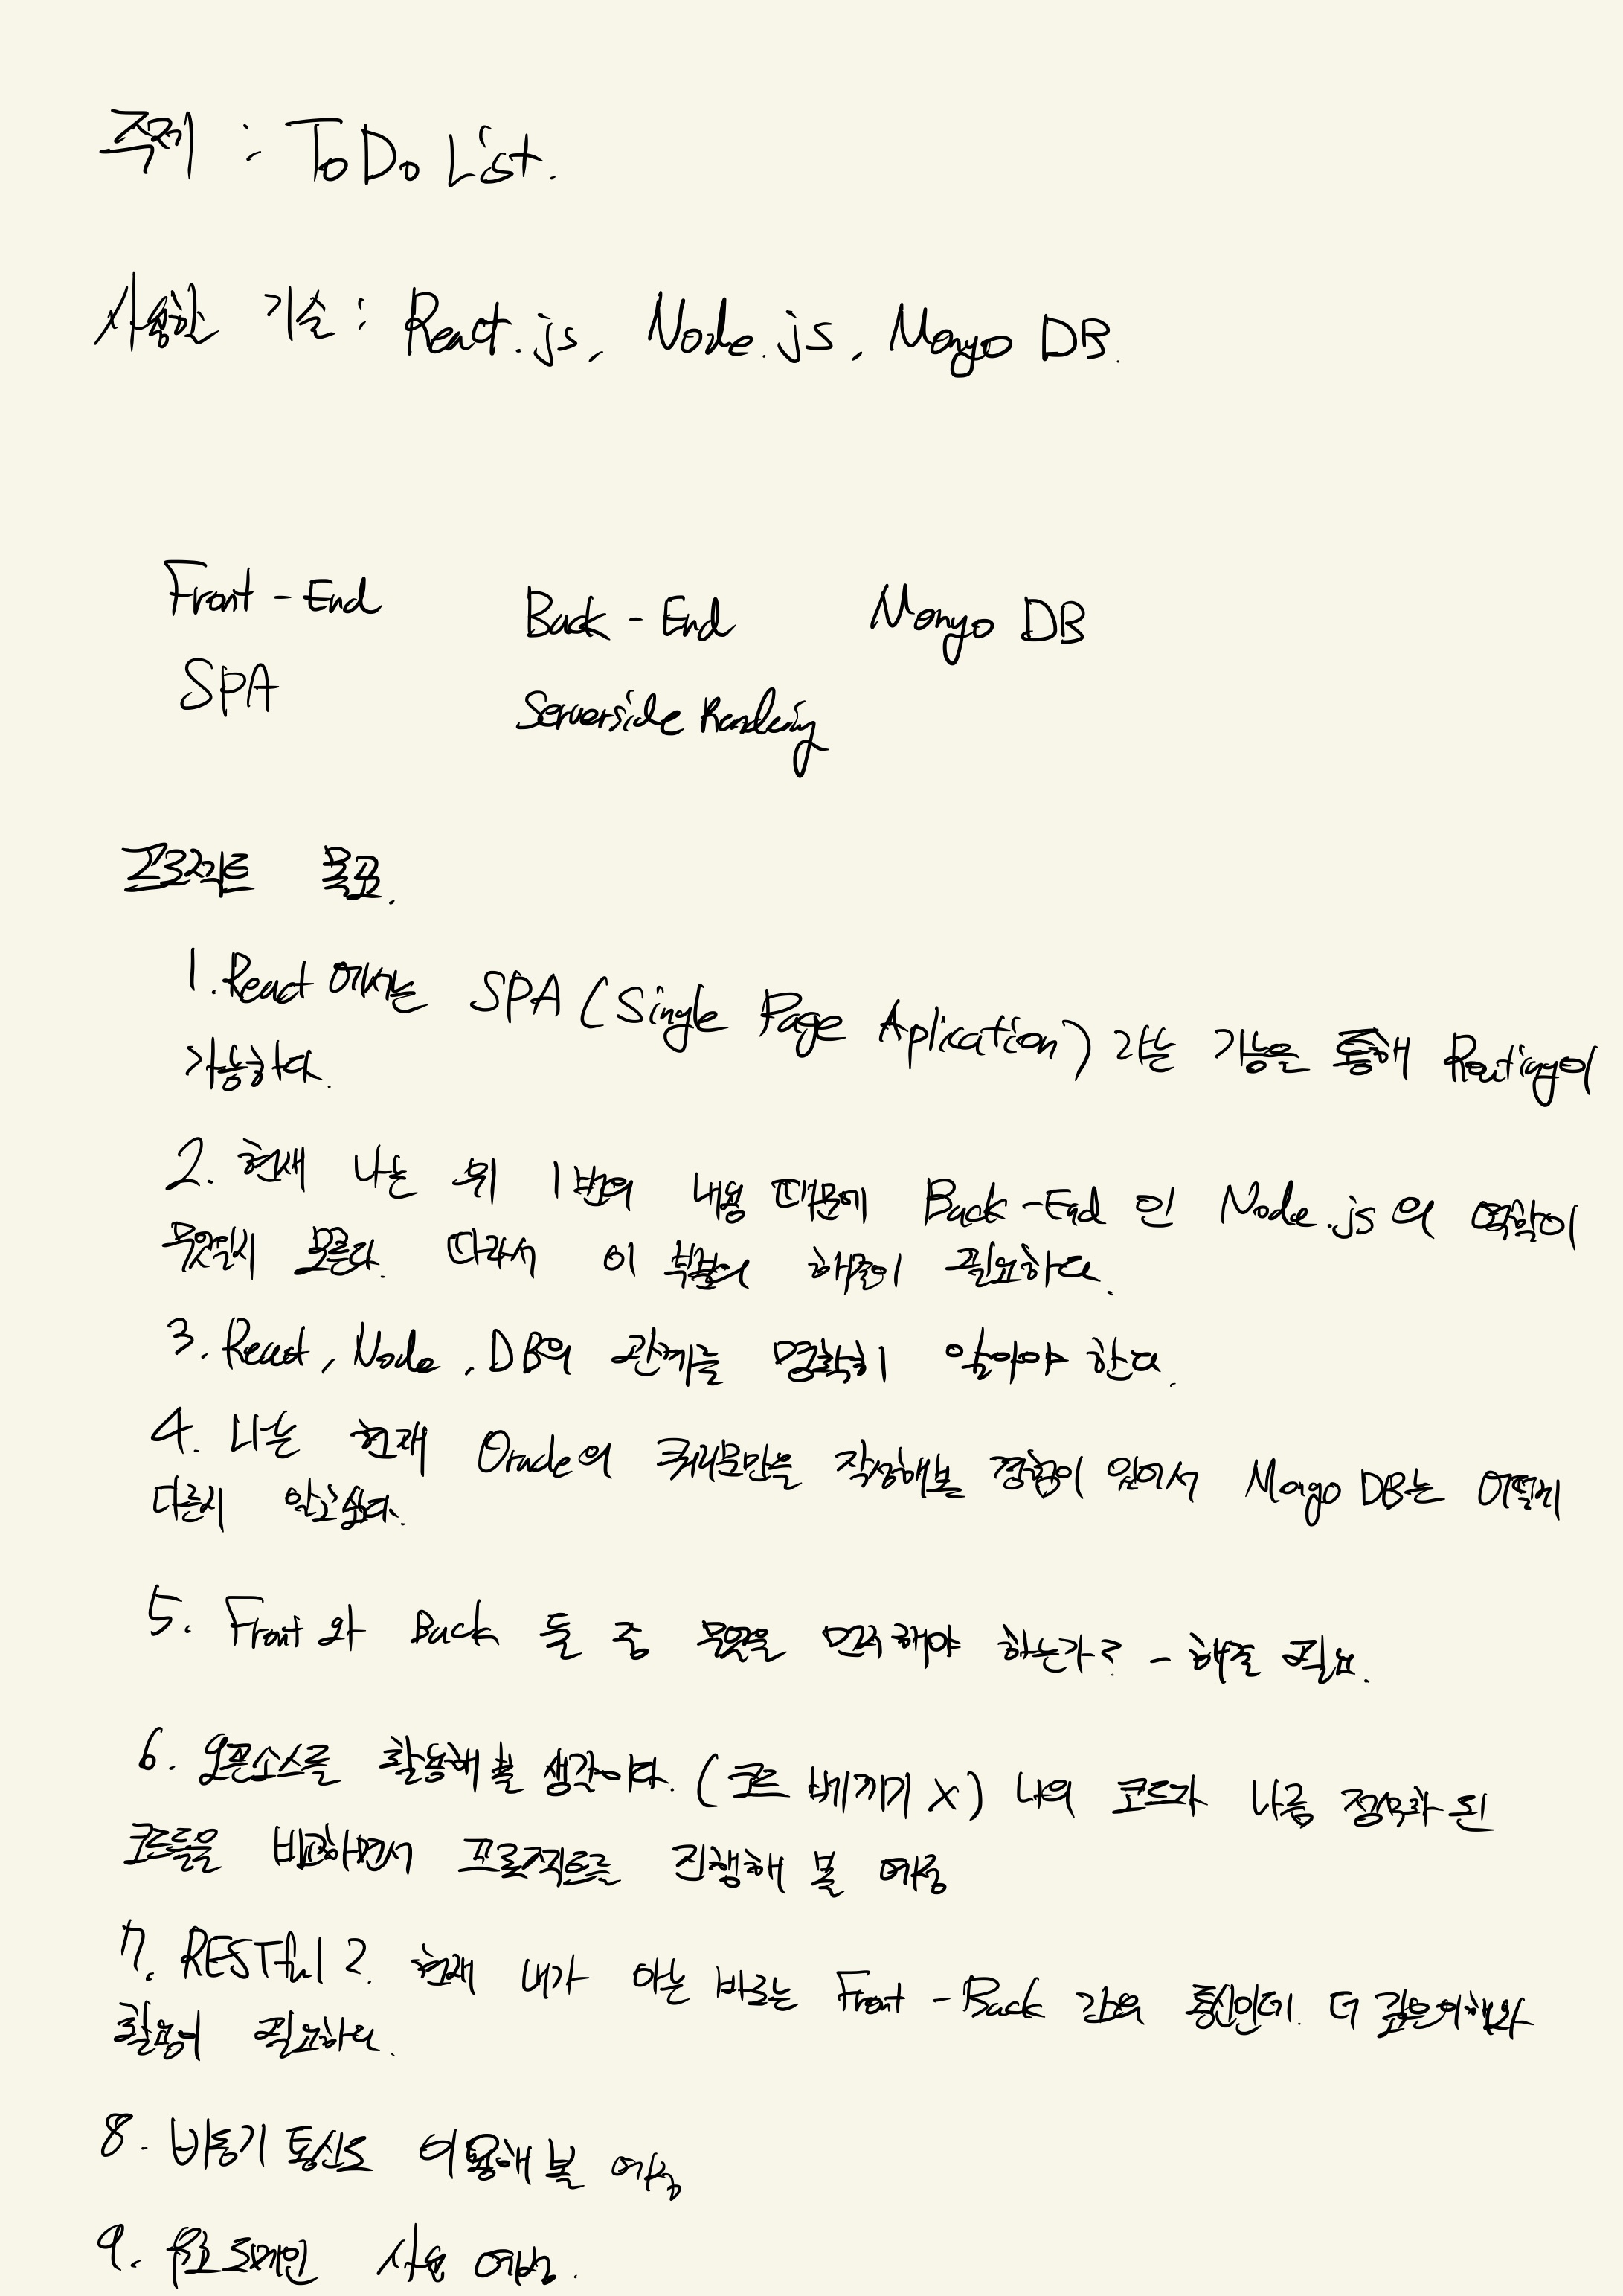 주제 : ToDo List.
사용한 기술 : React.js, Node.js, Mongo DB.
Front - End Back - End Mongo DB
SPA Serverside Rendering
프로젝트 목표.
1. React에서는 SPA (Single Page Aplication) 라는 기능을 통해 Routing이
가능하다.
2. 현재 나는 위 1번의 내용 때문에 Back-End 인 Node.js의 역할이
무엇일지 모른다. 따라서 이 부분의 해결이 필요하다.
3. React, Node, DB의 관계를 명확히 알아야 한다.
4. 나는 현재 Oracle의 쿼리문만을 작성해본 경험이 있어서 Mongo DB는 어떻게
다른지 알고싶다.
5. Front 와 Back 둘 중 무엇을 먼저 해야 하는가? - 해결 필요.
6. 오픈소스를 활용해 볼 생각이다. (코드 베끼기 X) 나의 코드가 나름 정형화 된
코드들을 비교하면서 프로젝트를 진행해 볼 예정
7. RESTful ?. 현재 내가 아는 바로는 Front - Back 간의 통신인데. 더 깊은이해와
활용이 필요하다.
8. 비동기 통신도 이용해 볼 예정
9. 무료도메인 사용 예정.